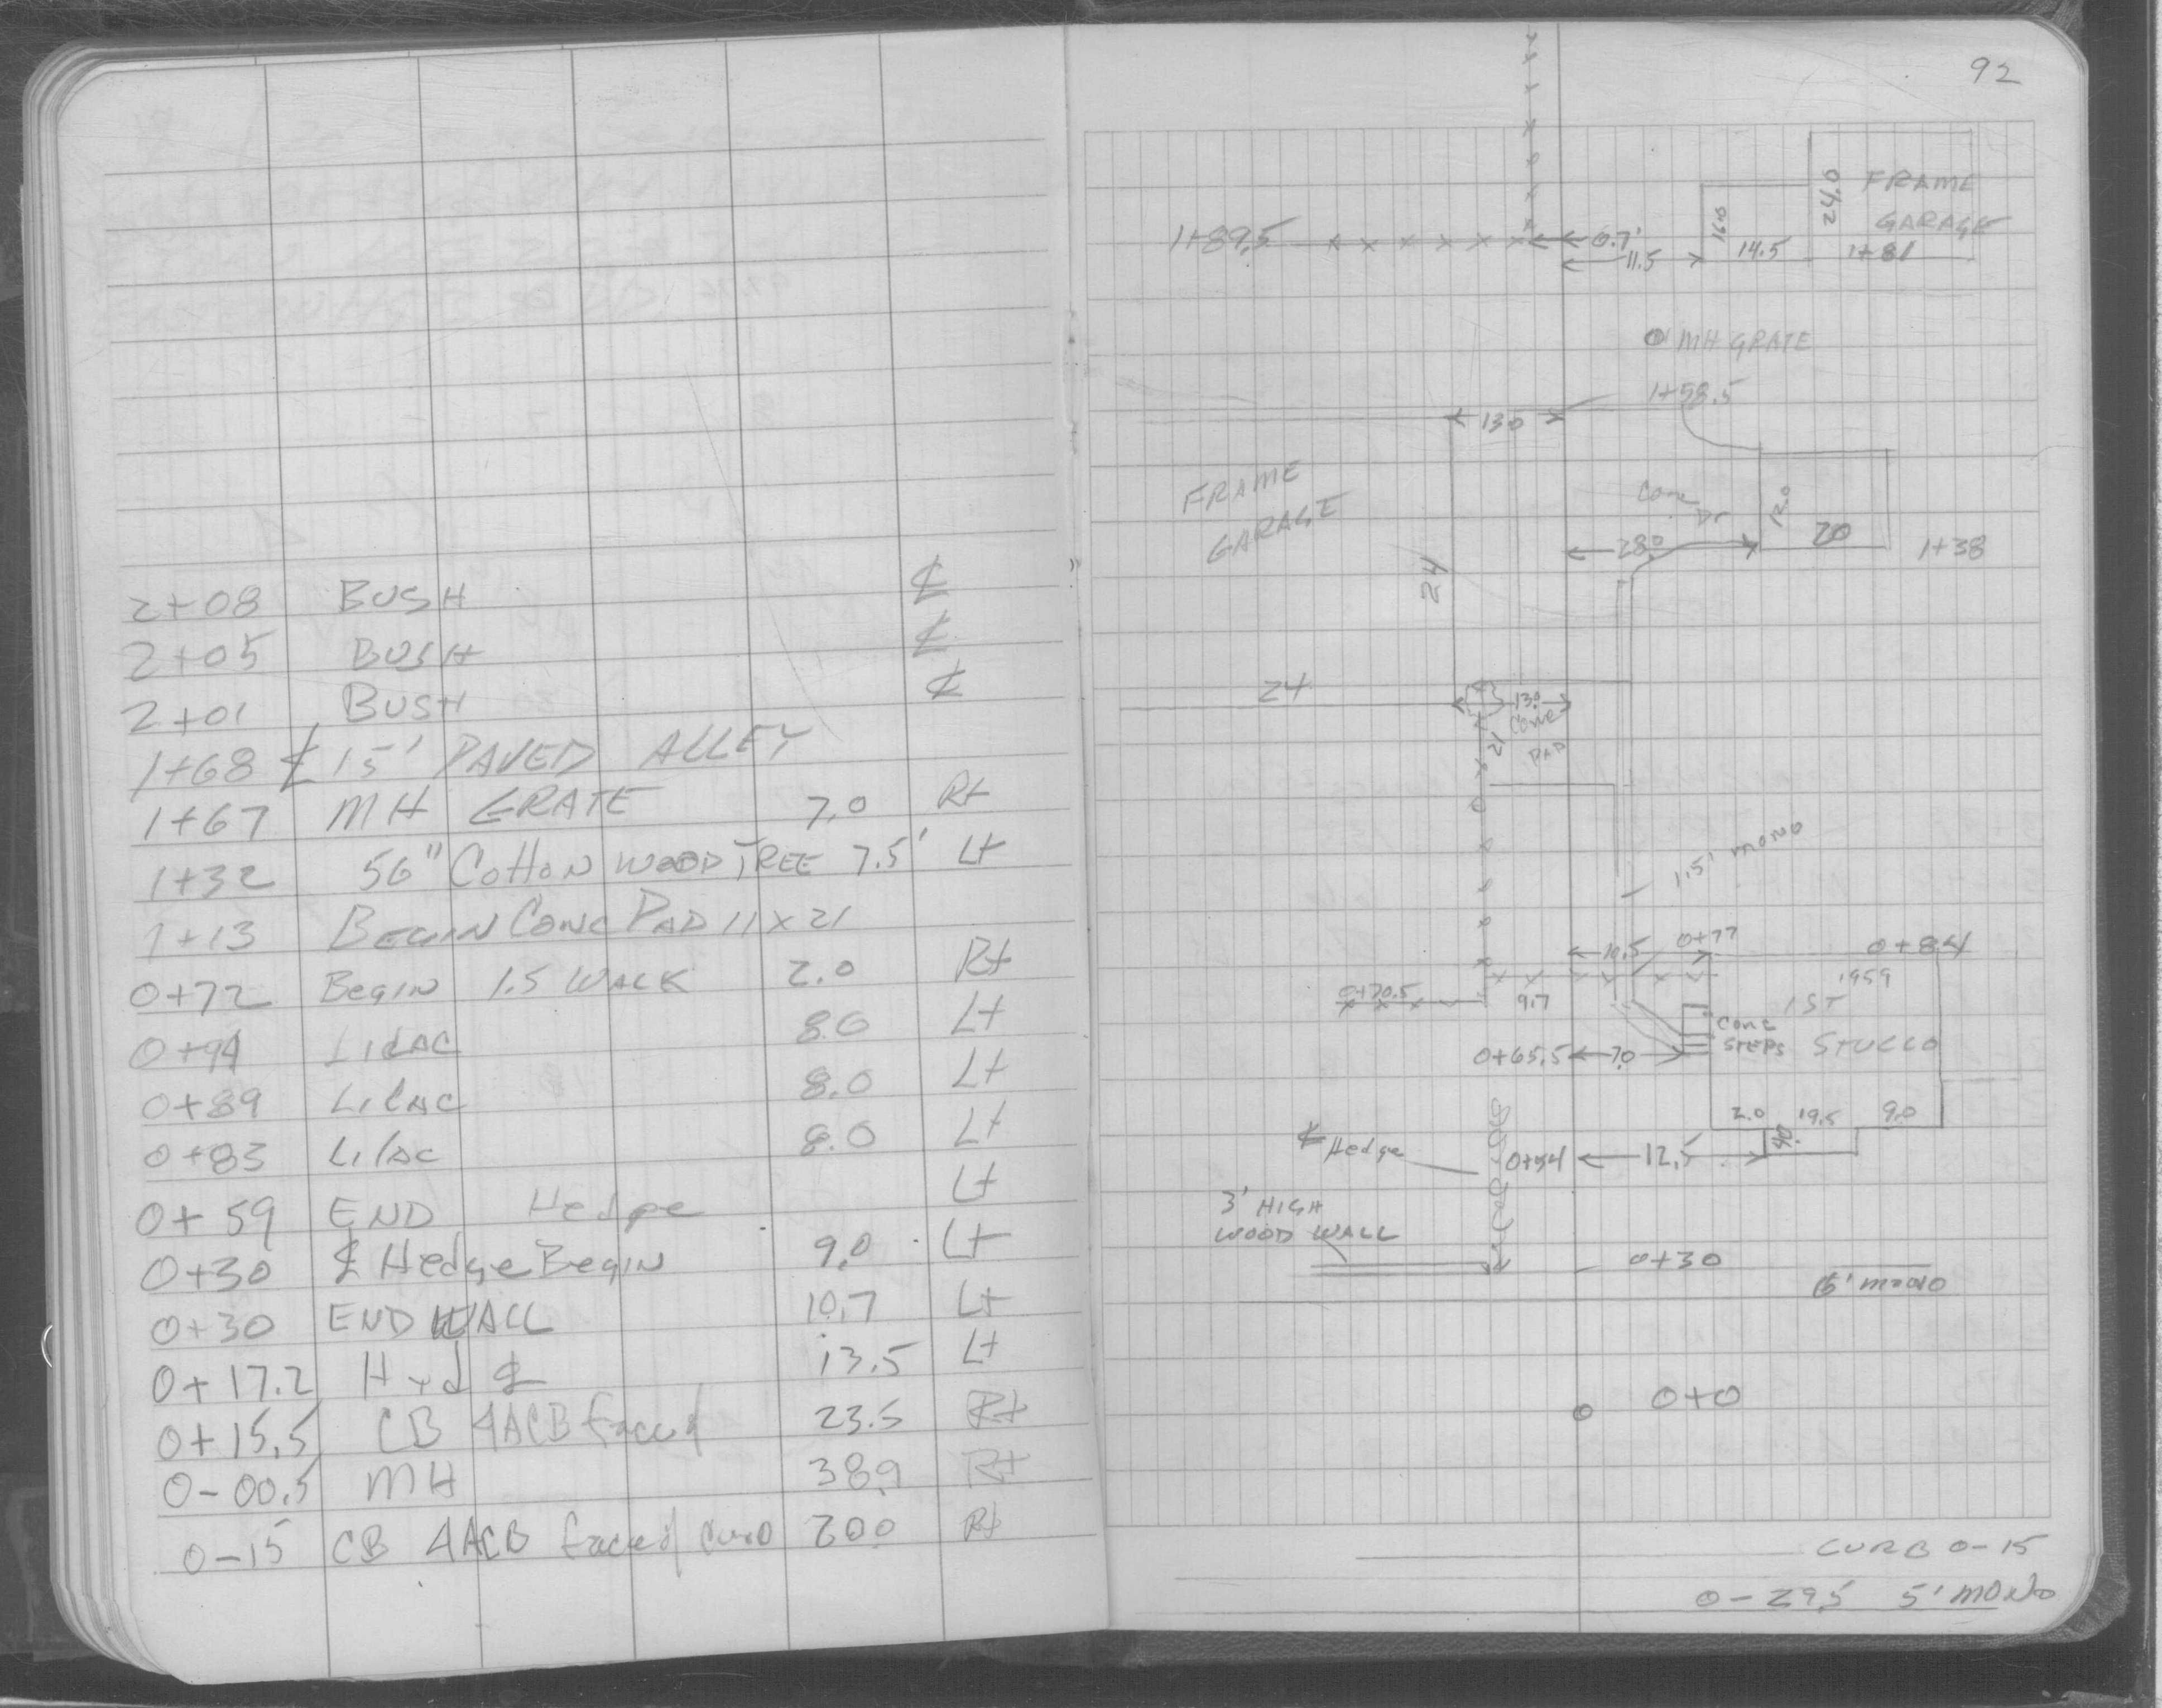 2+08 BUSH ℄
2+05 BUSH ℄
2+01 BUSH ℄
1+68 ℄ 15' PAVED ALLEY
1+67 MH GRATE 7.0 Rt
1+32 56" Cotton WOOD TREE 7.5' Lt
1+13 BEGIN CONC PAD 11 x 21
0+72 Begin 1.5 WALK 2.0 Rt
0+94 LILAC 8.0 Lt
0+89 LILAC 8.0 Lt
0+83 Lilac 8.0 Lt
0+59 END Hedge Lt
0+30 ℄ Hedge Begin 9.0 Lt
0+30 END WALL 10.7 Lt
0+17.2 Hyd ℄ 13.5 Lt
0+15.5 CB 4ACB face of 23.5 Rt
0-00.5 MH 38.9 Rt
0-15 CB 4ACB face of Curb 20.0 Rt
92
24.0 FRAME
GARAGE
16.0
1+89.5 0.7'
11.5 14.5 1+81
MH GRATE
1+58.5
13.0
FRAME
GARAGE
Conc
Dr
12.0
28.0 20 1+38
24
24 13.0
Conc
PAD
21
1.5' MONO
10.5 0+77 0+84
0+70.5 9.7 1959
1 ST
STUCCO
CONC
STEPS
0+65.5 7.0
2.0 19.5 9.0
4.0
℄ Hedge 0+54 12.5
3' HIGH
WOOD WALL
0+30
6' mono
0+0
CURB 0-15
0-29.5 5' MONO